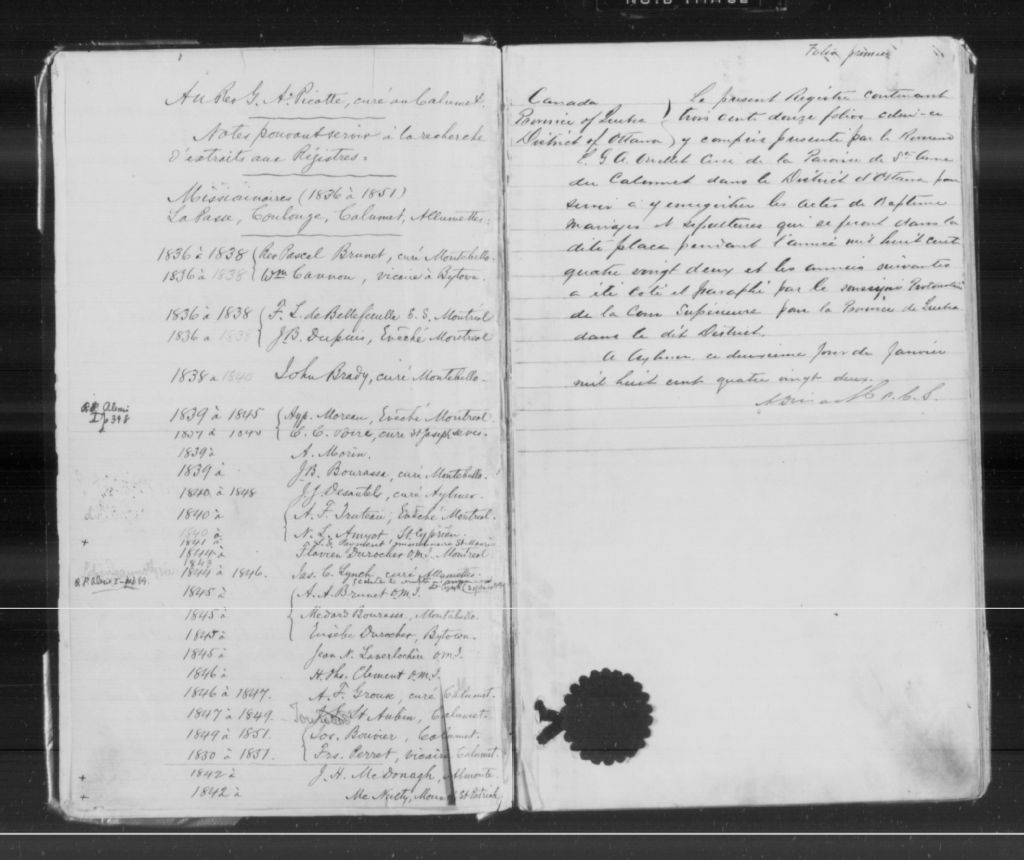 Au Rev G. A. Picotte, curé au Calumet.
Notes pouvant servir à la recherche
d'extraits aux Régistres:
Missionnaires (1836 à 1851)
La Passe, Coulonge, Calumet, Allumettes:
1836 à 1838 Rev Pascal Brunet, curé Montebello.
1836 à 1838 Wm Cannon, vicaire à Bytown.
1836 à 1838 F. L. de Bellefeuille S. S. Montréal
1836 à 1838 J. B. Dupuis, Evêché Montréal
1838 à 1840 John Brady, curé Montebello.
1839 à 1845 Moreau, Evêché Montreal
à curé St Joseph
1839 à A. Morin.
1839 à J. B. Bourassa, curé Montebello.
1840 à 1848 J. J. Desautels, curé Aylmer.
1840 à A. F. Truteau, Evêché Montreal.
1840 à N. L. Amyot, St Cyprien.
1841 à
1844 à Flavien Durocher O.M.I. Montreal
1844 à 1846. Jas. C. Lynch, curé Allumettes.
1845 à A. A. Brunet O.M.I.
1845 à Medard Bourassa, Montebello.
1845 à Eusèbe Durocher, Bytown.
1845 à Jean N. Laverlochère O.M.I.
1846 à H. Ths. Clement O.M.I.
1846 à 1847. A. F. Groux, curé Calumet.
1847 à 1849. St Aubin, Calumet.
1849 à 1851. Jos. Bouvier, Calumet.
1850 à 1851. Frs. Perret, vicaire Calumet.
+ 1842 à J. H. McDonagh, Almonte.
+ 1842 à Mc Nulty, St Patrick
Folio premier
Canada
Province of Quebec
District of Ottawa
Le present Registre contenant
trois cent douze folios celui-ci
y compris presenté par le Reverend
G A. Ouellet Curé de la Paroisse de Ste Anne
du Calumet dans le District d'Ottawa pour
servir à y enregistrer les actes de Baptême
mariages et sepultures qui se feront dans la
dite place pendant l'année mil huit cent
quatre vingt deux et les années suivantes
a été coté et paraphé par le Protonotaire
de la Cour Supérieure pour la Province de Quebec
dans le dit District.
A Aylmer ce deuxieme jour de Janvier
mil huit cent quatre vingt deux.
P. C. S.